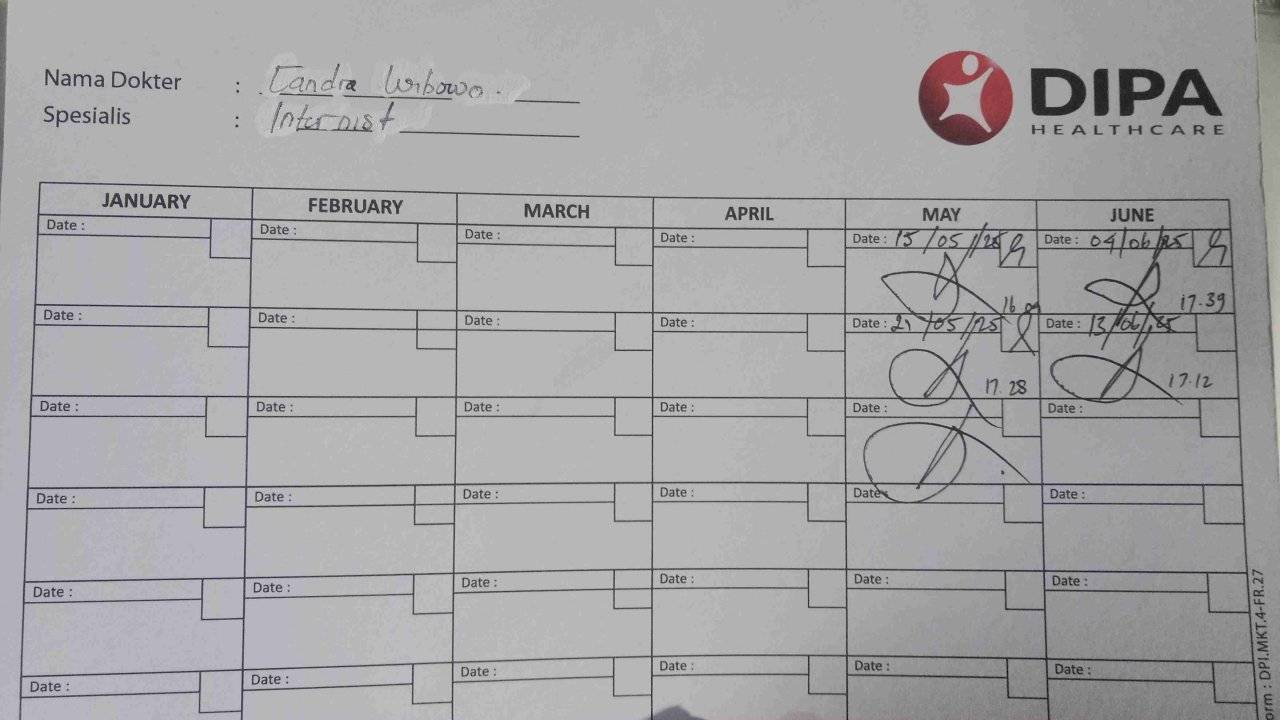 Nama Dokter : Candra Wibowo.
Spesialis : Internist
DIPA
HEALTHCARE
JANUARY FEBRUARY MARCH APRIL MAY JUNE
Date : Date : Date : Date : Date : 15/05/25 Date : 04/06/25
17.39
Date : Date : Date : Date : Date : /05/25 Date : 13/06/25
17.28 17.12
Date : Date : Date : Date : Date : Date :
Date : Date : Date : Date : Date : Date :
Date : Date : Date : Date : Date : Date :
Date : Date : Date : Date : Date : Date :
orm : DPI.MKT.4-FR.27